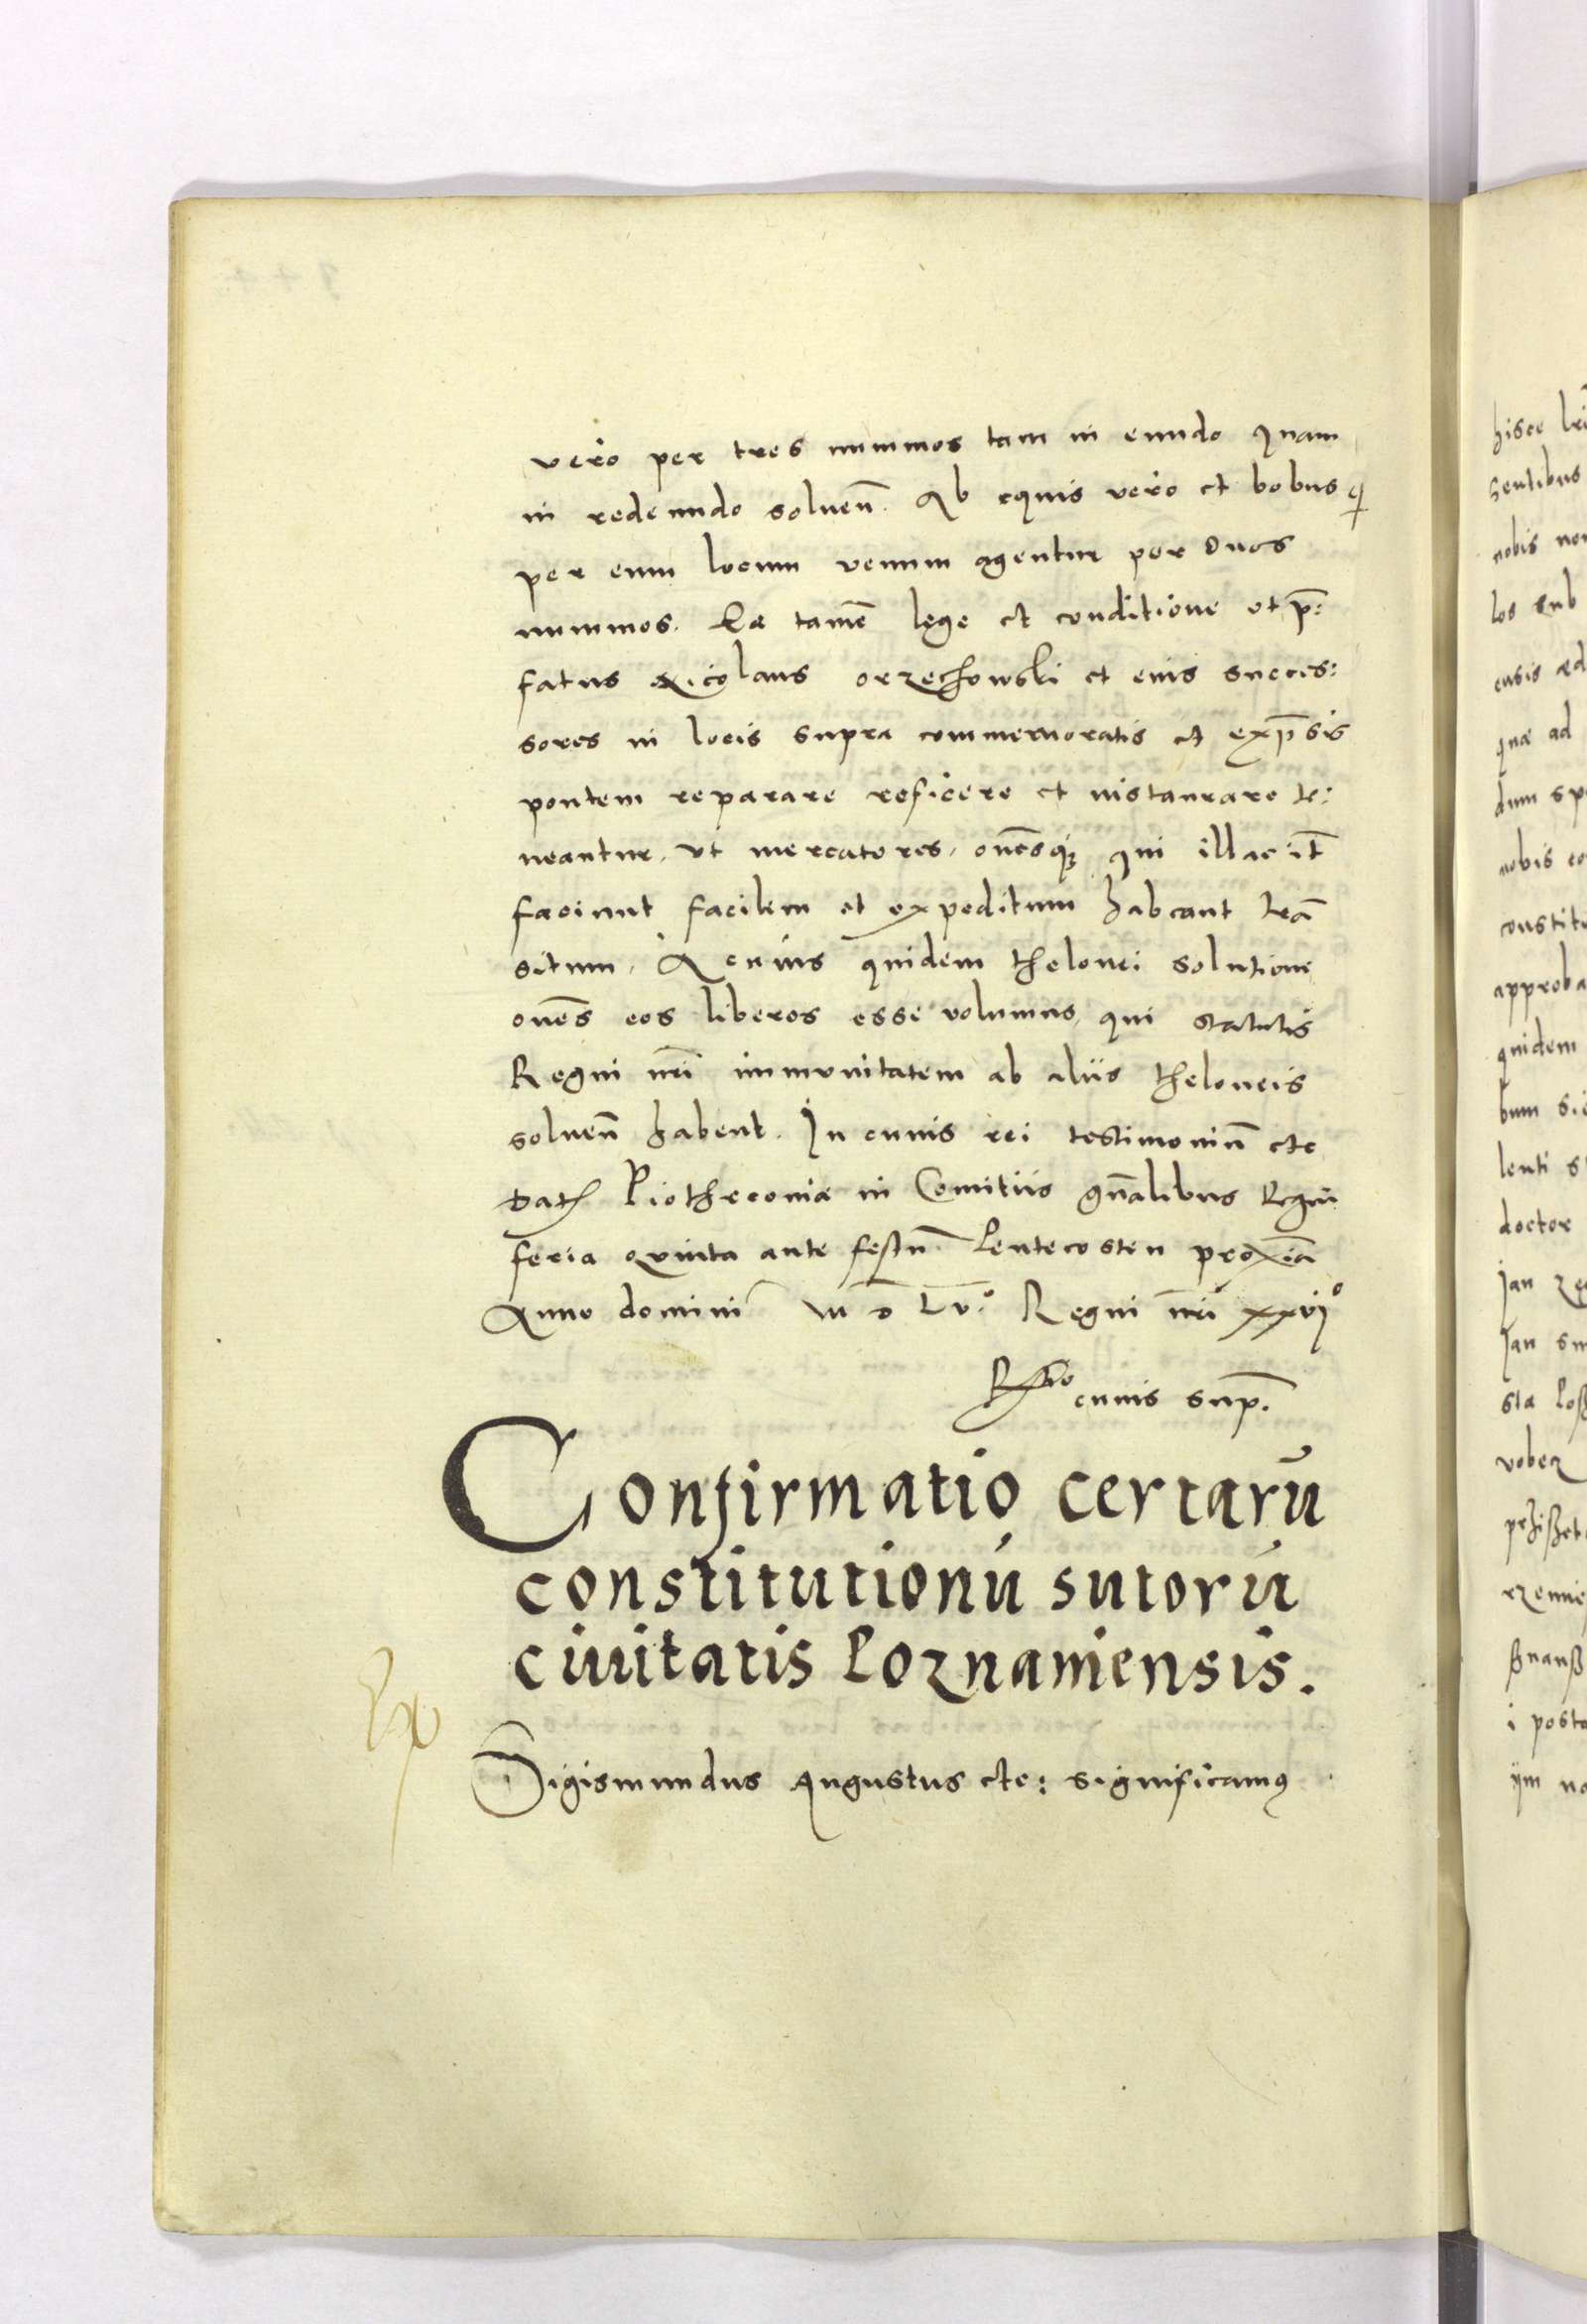 vero per tres nummos tam in eundo quam
in redeundo soluen̄. Ab equis vero et bobus q̨
per eum locum venum agentur per duos
nummos. Ea tamē lege et conditione ut p̄:
fatus Nicolaus orzechowski et eius succes:
sores in locis supra commemoratis et exp̄sis
pontem reparare reficere et instaurare te:
neantur, ut mercatores, oēsq̨ qui illac it̄
faciunt facilem et expeditum habeant trā
situm, A cuius quidem thelonei solutione
oēs eos liberos esse volumus, qui statutis
Regni nr̄i immunitatem ab aliis theloneis
soluen̄ habent. In cuius rei testimoniū etc
Dat̄ Piothrcoviæ in Comitiis gn̄alibus Regni
feria quinta ante festū Pentecosten proxīa
Anno domini M D Lv.º Regni nr̄i xxvjº
R͞tio cuius sup̄.
Confirmatio certarū
constitutionū sutorū
ciuitatis Poznaniensis.
Ex
Sigismundus Augustus etc: significamus
hisce
sentibus
nobis
los sub
ensis
quæ ad
dum
nobis
constit
approba
quidem
bum
lenti
doctor
Jan
Jan
sta
i
ijm